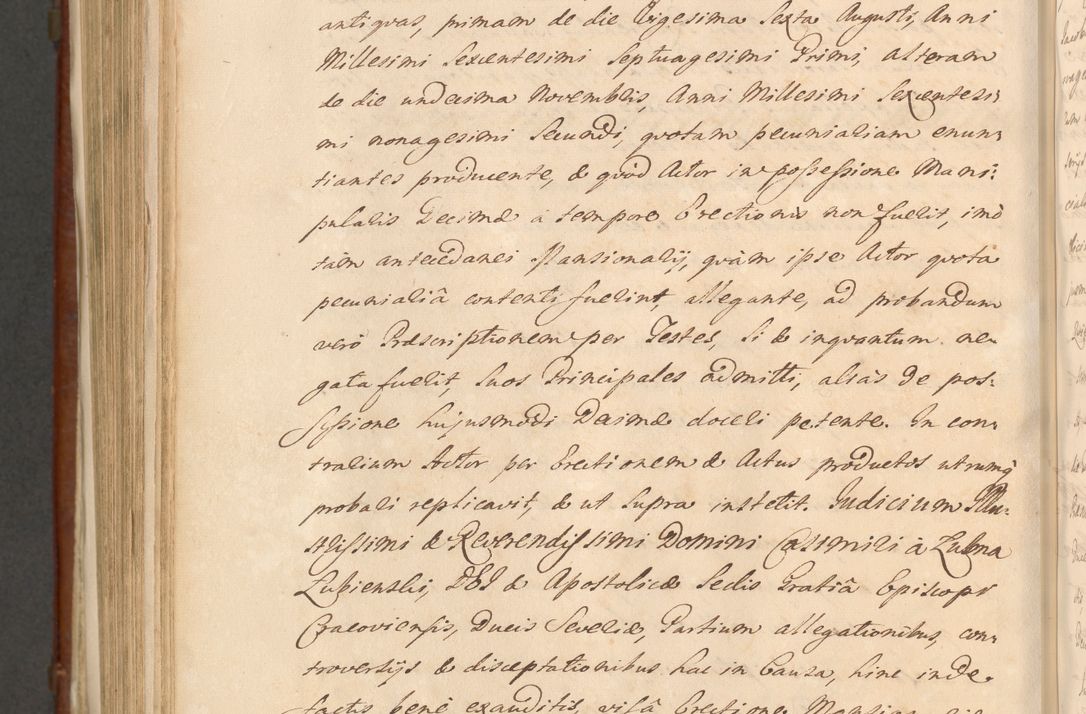 antiquas, primam de die Vigesima Sexta Augusti, Anni
Millesimi Sexcentesimi Septuagesimi Primi, alteram
de die undecima Novembris, Anni Millesimi Sexcentesi:
mi nonagesimi Secundi, quotam pecuniariam enun:
tiantes producente, & quòd Actor in possessione Mani:
pularis Decimæ à tempore Erectionis non fuerit, imò
tàm antecedanei Mansionarij, quàm ipse Actor quota
pecuniariâ contenti fuerint, allegante, ad probandum
verò Præscriptionem per Testes, si & inquantum ne:
gata fuerit, suos Principales admitti, aliàs de pos:
sessione hujusmodi Decimæ doceri petente. In con:
trarium Actor per Erectionem & Actus productos utrumq
probari replicavit, & ut supra institit. Judicium Illu:
strissimi & Reverendissimi Domini Casimiri à Lubna
Lubienski, DEI & Apostolicæ Sedis Gratiâ Episcopi
Cracoviensis, Ducis Severiæ, Partium allegationibus, con:
troversijs & disceptationibus hac in Causa, hinc inde
factis bene exauditis, visâ Erectione